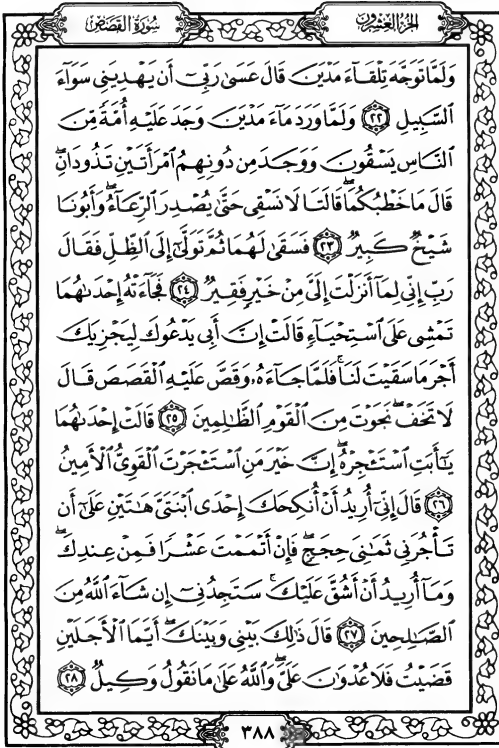 سُورَةُ القَصَصِ الجُزْءُ العِشْرُونَ
وَلَمَّا تَوَجَّهَ تِلْقَآءَ مَدْيَنَ قَالَ عَسَىٰ رَبِّىٓ أَن يَهْدِيَنِى سَوَآءَ
ٱلسَّبِيلِ ٢٢ وَلَمَّا وَرَدَ مَآءَ مَدْيَنَ وَجَدَ عَلَيْهِ أُمَّةً مِّنَ
ٱلنَّاسِ يَسْقُونَ وَوَجَدَ مِن دُونِهِمُ ٱمْرَأَتَيْنِ تَذُودَانِۖ
قَالَ مَا خَطْبُكُمَاۖ قَالَتَا لَا نَسْقِى حَتَّىٰ يُصْدِرَ ٱلرِّعَآءُۖ وَأَبُونَا
شَيْخٌ كَبِيرٌ ٢٣ فَسَقَىٰ لَهُمَا ثُمَّ تَوَلَّىٰٓ إِلَى ٱلظِّلِّ فَقَالَ
رَبِّ إِنِّى لِمَآ أَنزَلْتَ إِلَىَّ مِنْ خَيْرٍ فَقِيرٌ ٢٤ فَجَآءَتْهُ إِحْدَىٰهُمَا
تَمْشِى عَلَى ٱسْتِحْيَآءٍ قَالَتْ إِنَّ أَبِى يَدْعُوكَ لِيَجْزِيَكَ
أَجْرَ مَا سَقَيْتَ لَنَاۚ فَلَمَّا جَآءَهُۥ وَقَصَّ عَلَيْهِ ٱلْقَصَصَ قَالَ
لَا تَخَفْۖ نَجَوْتَ مِنَ ٱلْقَوْمِ ٱلظَّٰلِمِينَ ٢٥ قَالَتْ إِحْدَىٰهُمَا
يَٰٓأَبَتِ ٱسْتَـْٔجِرْهُۖ إِنَّ خَيْرَ مَنِ ٱسْتَـْٔجَرْتَ ٱلْقَوِىُّ ٱلْأَمِينُ
٢٦ قَالَ إِنِّىٓ أُرِيدُ أَنْ أُنكِحَكَ إِحْدَى ٱبْنَتَىَّ هَٰتَيْنِ عَلَىٰٓ أَن
تَأْجُرَنِى ثَمَٰنِىَ حِجَجٍۖ فَإِنْ أَتْمَمْتَ عَشْرًا فَمِنْ عِندِكَۖ
وَمَآ أُرِيدُ أَنْ أَشُقَّ عَلَيْكَۚ سَتَجِدُنِىٓ إِن شَآءَ ٱللَّهُ مِنَ
ٱلصَّٰلِحِينَ ٢٧ قَالَ ذَٰلِكَ بَيْنِى وَبَيْنَكَۖ أَيَّمَا ٱلْأَجَلَيْنِ
قَضَيْتُ فَلَا عُدْوَٰنَ عَلَىَّۖ وَٱللَّهُ عَلَىٰ مَا نَقُولُ وَكِيلٌ ٢٨
٣٨٨